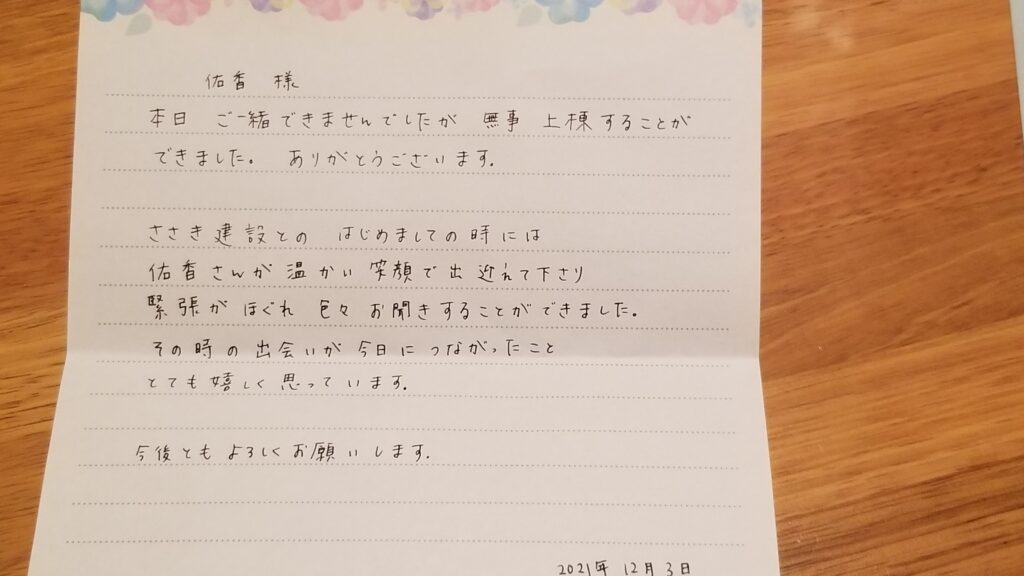 佑香 様
本日 ご一緒できませんでしたが 無事 上棟することが
できました。 ありがとうございます。
ささき建設との はじめましての時には
佑香さんが 温かい 笑顔で出迎えて下さり
緊張が ほぐれ 色々 お聞きすることができました。
その時の出会いが 今日に つながったこと
とても嬉しく思っています。
今後とも よろしくお願いします。
2021年 12月 3日